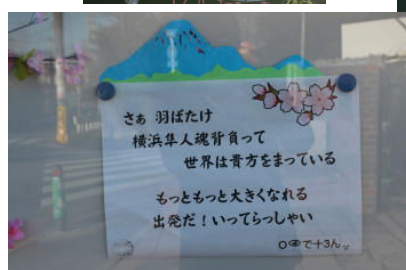 さぁ 羽ばたけ
横浜隼人魂背負って
世界は貴方をまっている
もっともっと大きくなれる
出発だ！いってらっしゃい